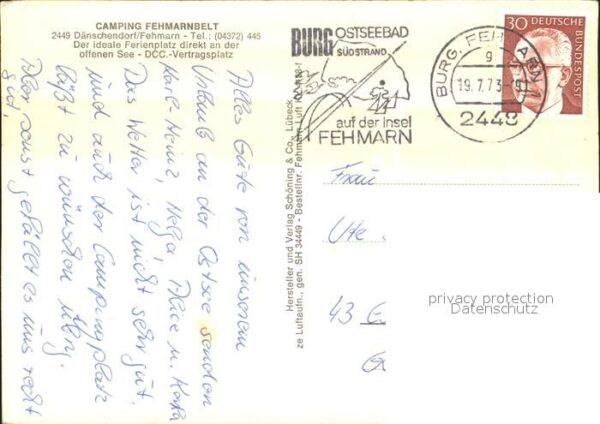 CAMPING FEHMARNBELT
2449 Dänschendorf/Fehmarn - Tel.: (04372) 445
Der ideale Ferienplatz direkt an der
offenen See - DCC.-Vertragsplatz
Alles Gute von unserem
Urlaub an der Ostsee senden
Karl-Heinz, Helga, u.
Das Wetter ist nicht sehr gut,
und auch der Campingplatz
läßt zu wünschen übrig.
Aber sonst gefällt es uns recht
gut.
Hersteller und Verlag Schöning & Co., Lübeck
ze Luftaufn., gen. SH 34449 - Bestellnr. Fehmarn Luft
BURG OSTSEEBAD
SÜDSTRAND
auf der Insel
FEHMARN
BURG, FEHMARN
g
19.7.73
2448
30 DEUTSCHE
BUNDESPOST
Frau
Ute
43 E
privacy protection
Datenschutz